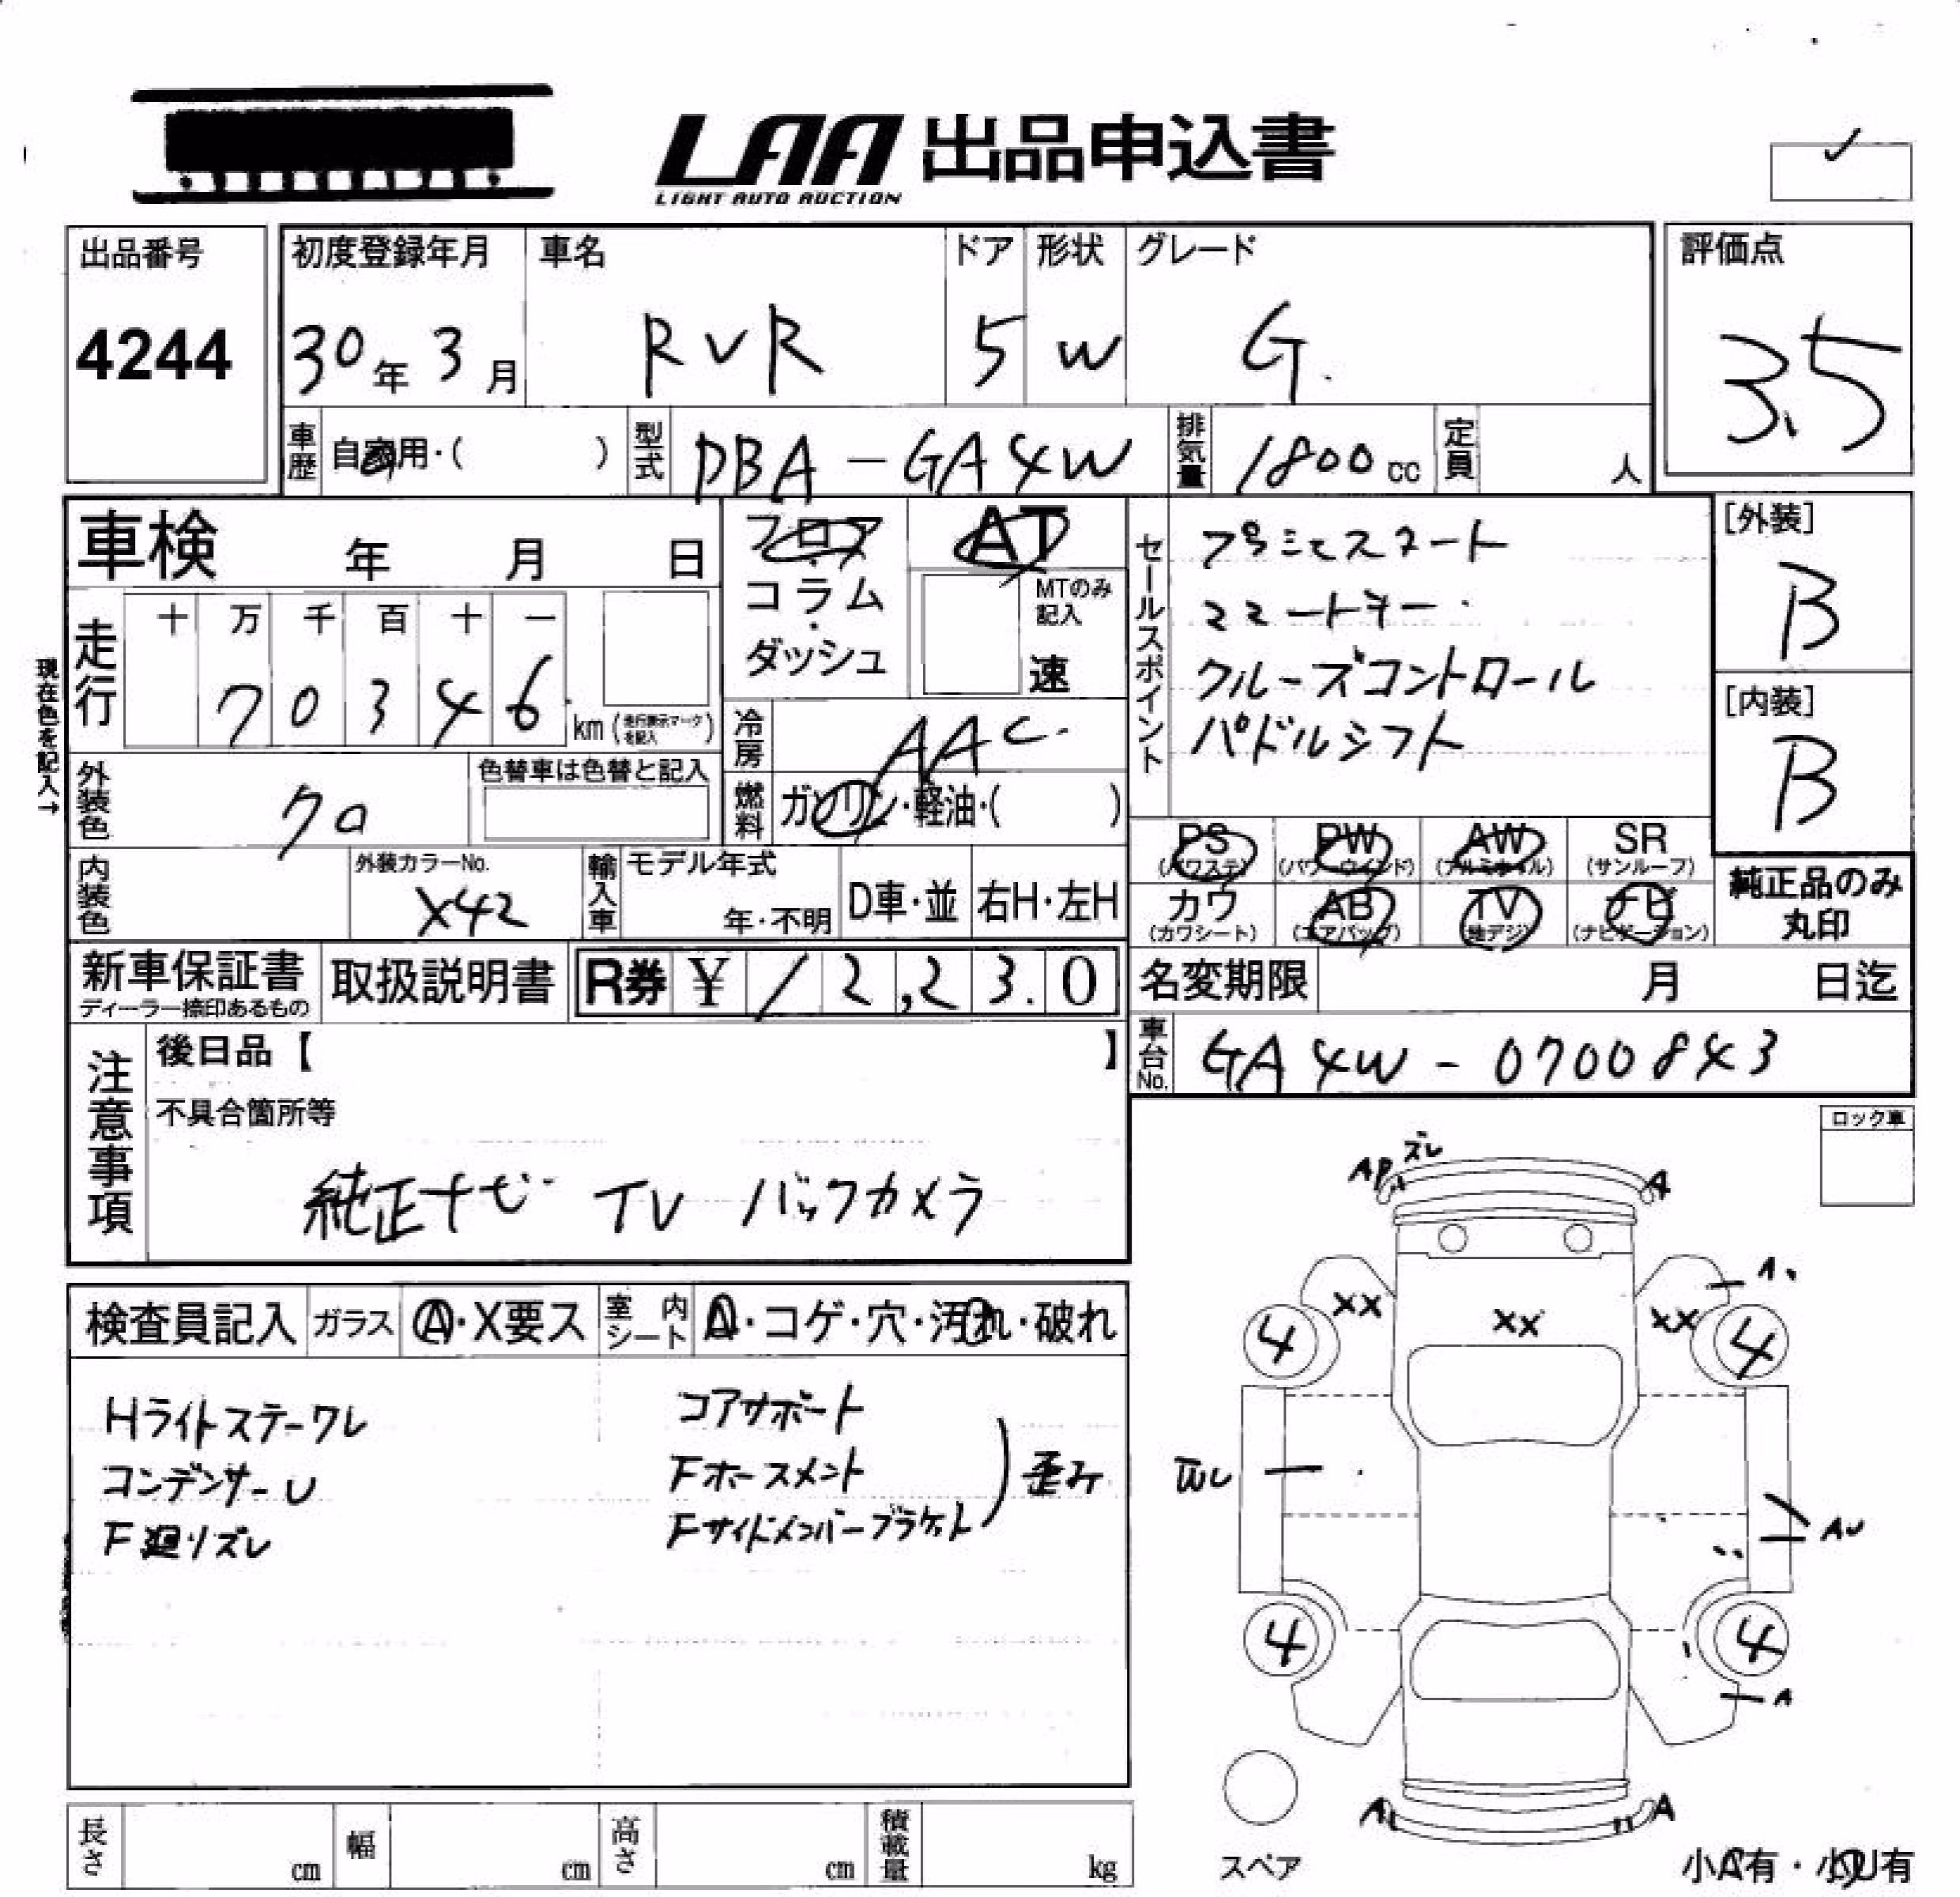 LAA 出品申込書
LIGHT AUTO AUCTION
出品番号
4244
初度登録年月
30年 3月
車名
RVR
ドア
5
形状
W
グレード
G.
評価点
3.5
車歴
自家用・( )
型式
DBA-GA4W
排気量
1800cc
定員
人
車検 年 月 日
フロア・コラム・ダッシュ
AT
MTのみ記入
速
セールスポイント
スマートキー
クルーズコントロール
パドルシフト
[外装]
B
[内装]
B
現在色を記入→
走行
十 万 千 百 十 一
7 0 3 4 6
km (走行表示マークを記入)
冷房
AAC
燃料
ガソリン・軽油・( )
外装色
クロ
色替車は色替と記入
内装色
外装カラーNo.
X42
輸入車
モデル年式
年・不明
D車・並
右H・左H
PS
(パワステ)
PW
(パワーウインド)
AW
(アルミホイル)
SR
(サンルーフ)
カワ
(カワシート)
AB
(エアバッグ)
TV
(地デジ)
ナビ
(ナビゲーション)
純正品のみ
丸印
新車保証書
ディーラー捺印あるもの
取扱説明書
R券 ¥12,230
名変期限 月 日迄
車台No.
GA4W-0700843
注意事項
後日品【 】
不具合箇所等
純正ナビ TV バックカメラ
ロック車
検査員記入
ガラス
A・X要ス
室内シート
A・コゲ・穴・汚れ・破れ
Hライトステークレ
コンデンサーU
F廻リズレ
コアサポート
Fホースメント
Fサイドメンバーブラケット
歪み
AP ズレ
A
A
XX
XX
XX
4
4
AU
4
4
A
A
A
スペア
小A有・小U有
長さ cm
幅 cm
高さ cm
積載量 kg